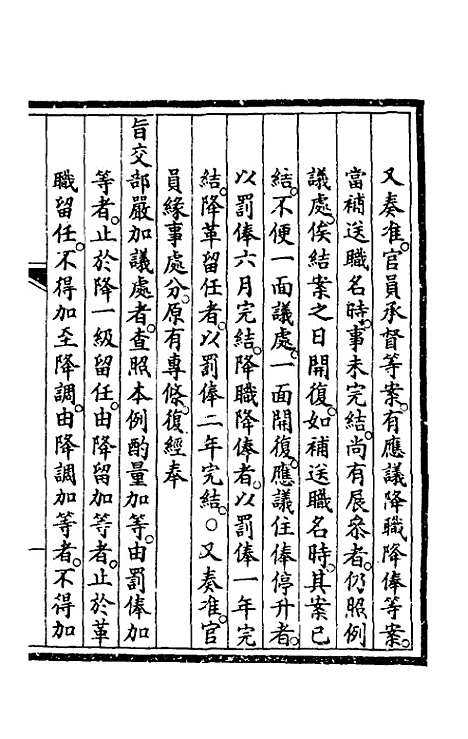 又奏准。官員承督等案。有應議降職降俸等案。
當補送職名時。事未完結。尚有展叅者。仍照例
議處。俟結案之日開復。如補送職名時。其案已
結。不便一面議處。一面開復。應議住俸停升者。
以罰俸六月完結。降職降俸者。以罰俸一年完
結。降革留任者。以罰俸二年完結。○又奏准。官
員緣事處分。原有專條。復經奉
旨交部嚴加議處者。查照本例酌量加等。由罰俸加
等者。止於降一級留任。由降留加等者。止於革
職留任。不得加至降調。由降調加等者。不得加